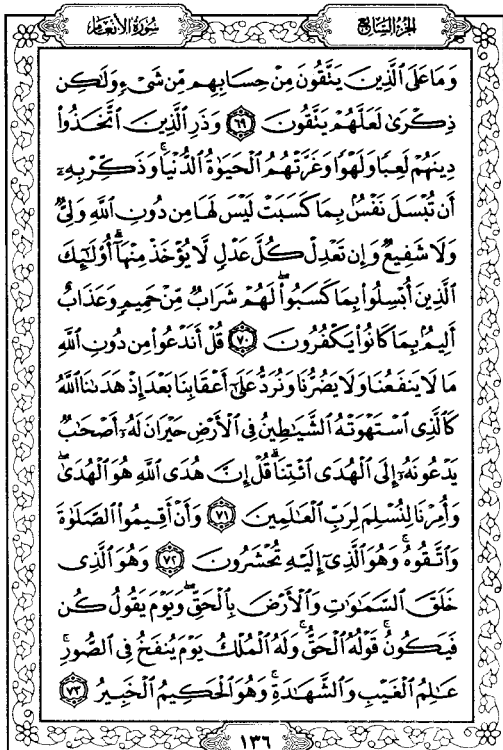 سُورَةُ الأَنعَام الجُزءُ السَّابِع
وَمَا عَلَى ٱلَّذِينَ يَتَّقُونَ مِنْ حِسَابِهِم مِّن شَىْءٍ وَلَٰكِن
ذِكْرَىٰ لَعَلَّهُمْ يَتَّقُونَ ٦٩ وَذَرِ ٱلَّذِينَ ٱتَّخَذُوا۟
دِينَهُمْ لَعِبًا وَلَهْوًا وَغَرَّتْهُمُ ٱلْحَيَوٰةُ ٱلدُّنْيَا ۚ وَذَكِّرْ بِهِۦٓ
أَن تُبْسَلَ نَفْسٌۢ بِمَا كَسَبَتْ لَيْسَ لَهَا مِن دُونِ ٱللَّهِ وَلِىٌّ
وَلَا شَفِيعٌ وَإِن تَعْدِلْ كُلَّ عَدْلٍ لَّا يُؤْخَذْ مِنْهَآ ۗ أُو۟لَٰٓئِكَ
ٱلَّذِينَ أُبْسِلُوا۟ بِمَا كَسَبُوا۟ ۖ لَهُمْ شَرَابٌ مِّنْ حَمِيمٍ وَعَذَابٌ
أَلِيمٌۢ بِمَا كَانُوا۟ يَكْفُرُونَ ٧٠ قُلْ أَنَدْعُوا۟ مِن دُونِ ٱللَّهِ
مَا لَا يَنفَعُنَا وَلَا يَضُرُّنَا وَنُرَدُّ عَلَىٰٓ أَعْقَابِنَا بَعْدَ إِذْ هَدَىٰنَا ٱللَّهُ
كَٱلَّذِى ٱسْتَهْوَتْهُ ٱلشَّيَٰطِينُ فِى ٱلْأَرْضِ حَيْرَانَ لَهُۥٓ أَصْحَٰبٌ
يَدْعُونَهُۥٓ إِلَى ٱلْهُدَى ٱئْتِنَا ۗ قُلْ إِنَّ هُدَى ٱللَّهِ هُوَ ٱلْهُدَىٰ ۖ
وَأُمِرْنَا لِنُسْلِمَ لِرَبِّ ٱلْعَٰلَمِينَ ٧١ وَأَنْ أَقِيمُوا۟ ٱلصَّلَوٰةَ
وَٱتَّقُوهُ ۚ وَهُوَ ٱلَّذِىٓ إِلَيْهِ تُحْشَرُونَ ٧٢ وَهُوَ ٱلَّذِى
خَلَقَ ٱلسَّمَٰوَٰتِ وَٱلْأَرْضَ بِٱلْحَقِّ ۖ وَيَوْمَ يَقُولُ كُن
فَيَكُونُ ۚ قَوْلُهُ ٱلْحَقُّ ۚ وَلَهُ ٱلْمُلْكُ يَوْمَ يُنفَخُ فِى ٱلصُّورِ ۚ
عَٰلِمُ ٱلْغَيْبِ وَٱلشَّهَٰدَةِ ۚ وَهُوَ ٱلْحَكِيمُ ٱلْخَبِيرُ ٧٣
١٣٦